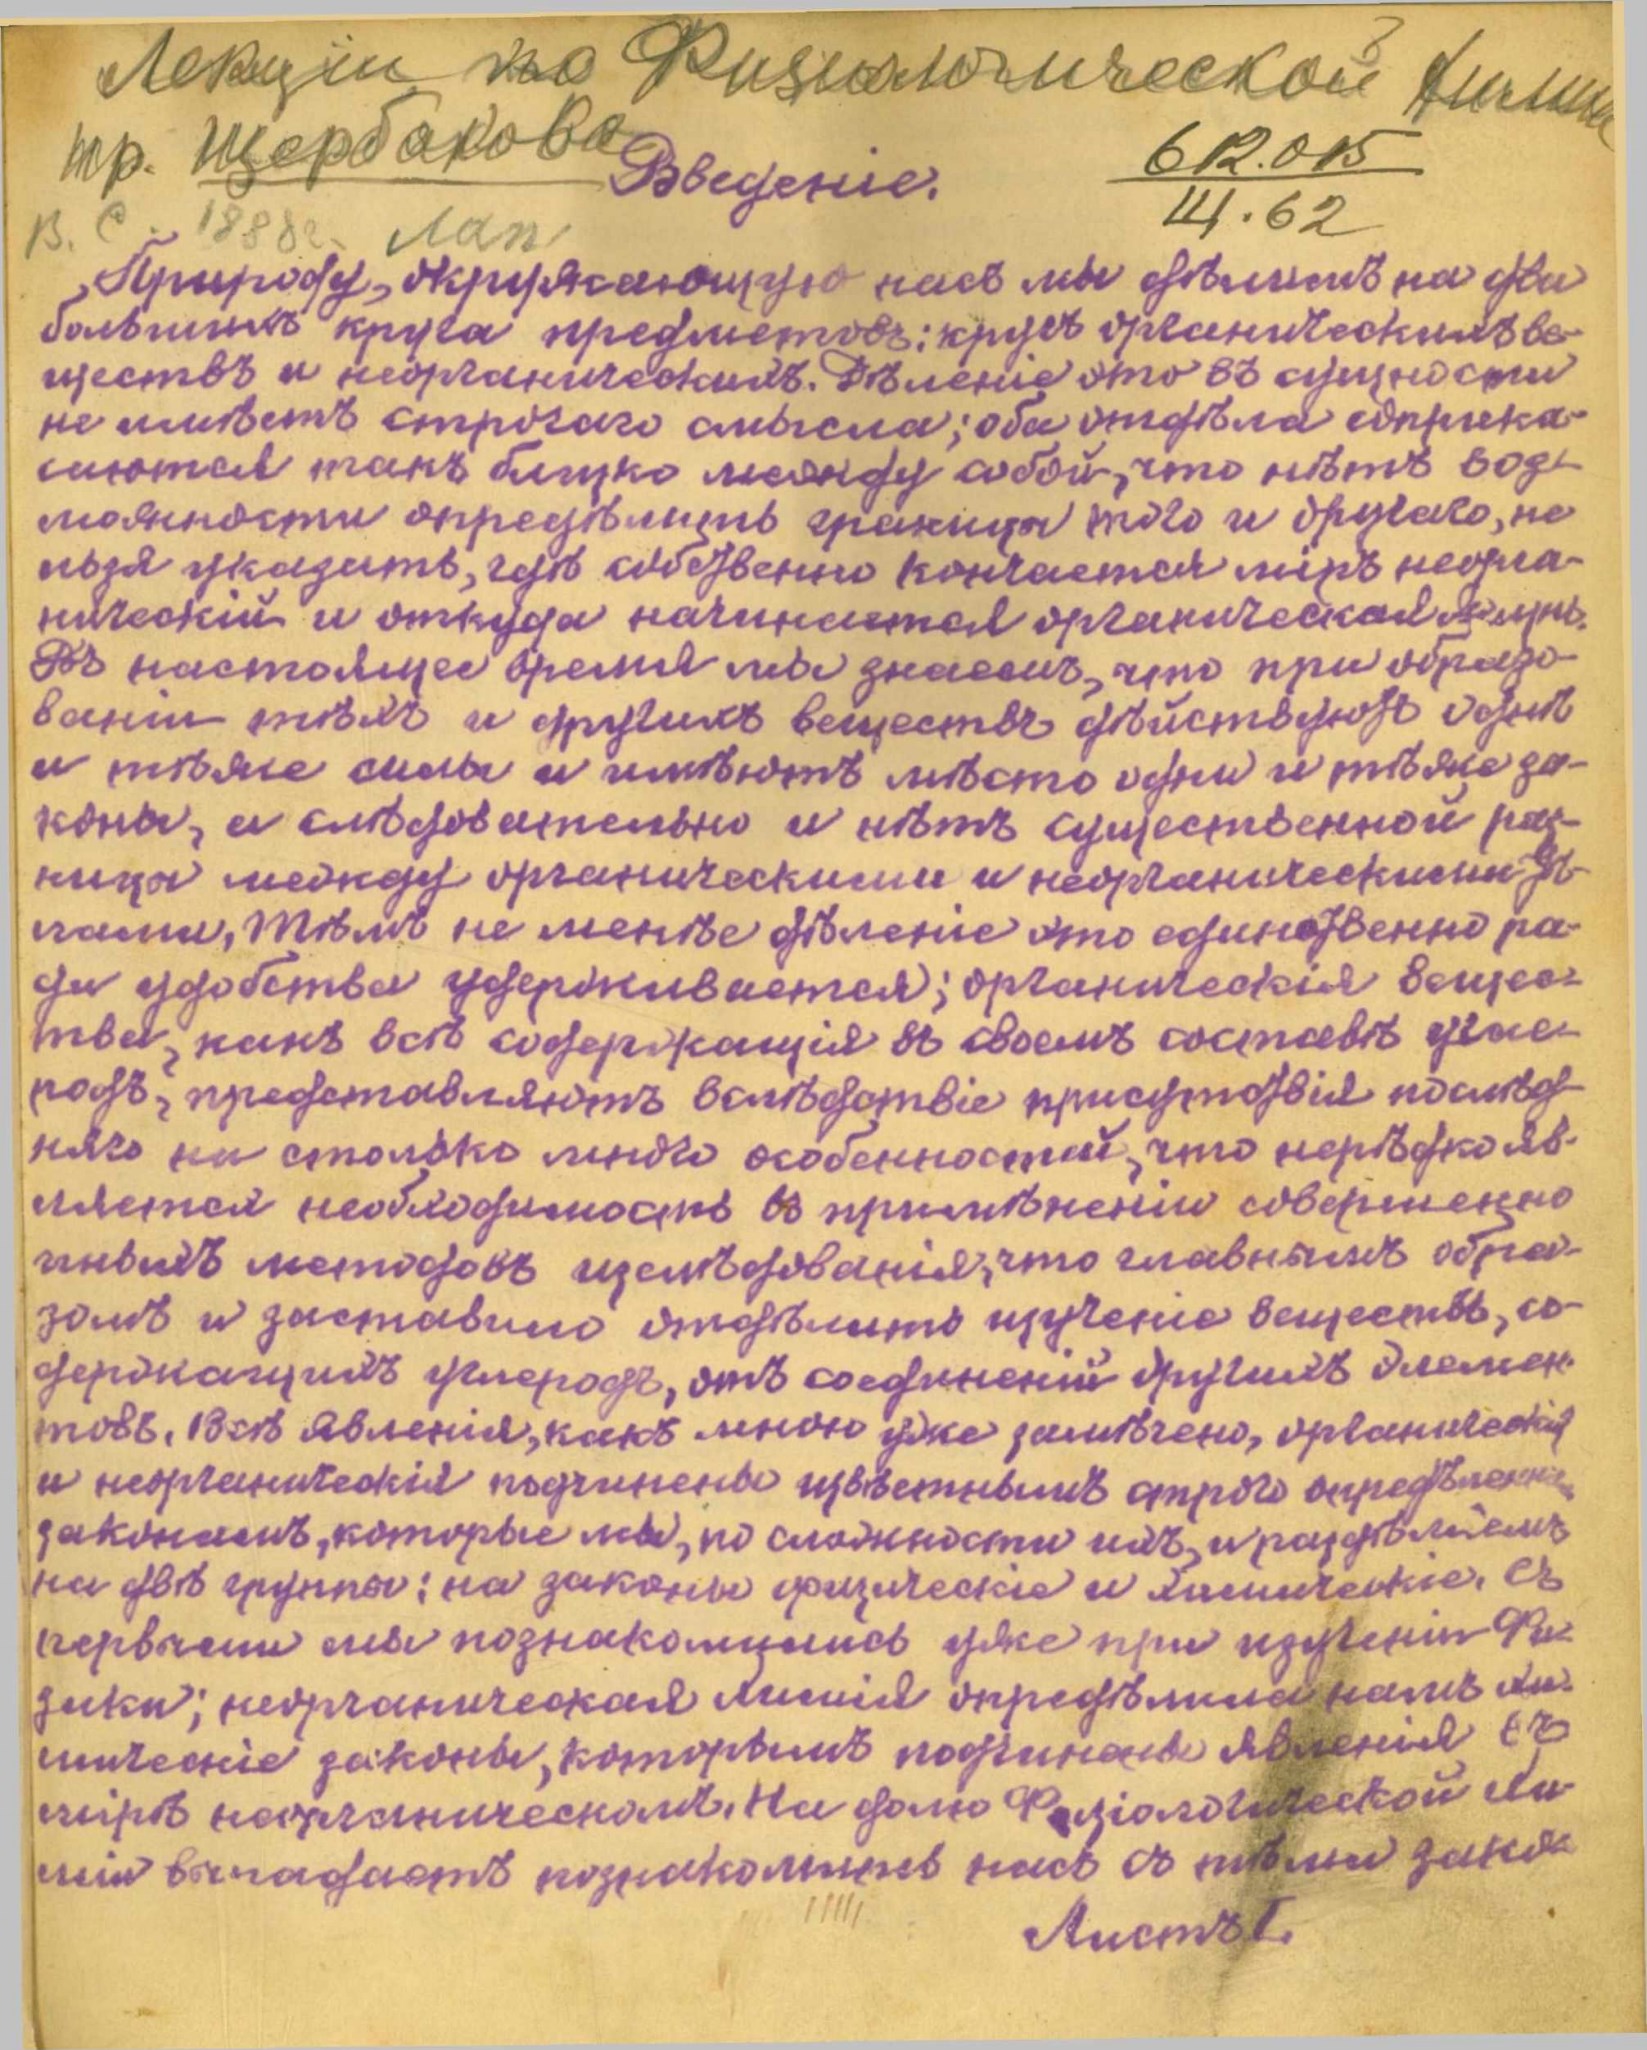 Лекціи по Физиологической Химіи
пр. Щербакова
612.015
Щ.62
Введеніе.
В. С. 1888г.
Природу, окружающую насъ мы дѣлимъ на два
большихъ круга предметовъ: кругъ органическихъ ве-
ществъ и неорганическихъ. Дѣленіе это въ сущности
не имѣетъ строгаго смысла; оба отдѣла соприка-
саются такъ близко между собой, что нѣтъ воз-
можности опредѣлить границы того и другаго, не
льзя указать, гдѣ собственно кончается міръ неорга-
ническій и откуда начинается органическая жизнь.
Въ настоящее время мы знаемъ, что при образо-
ваніи тѣхъ и другихъ веществъ дѣйствуютъ однѣ
и тѣже силы и имѣютъ мѣсто одни и тѣже за-
коны, а слѣдовательно и нѣтъ существенной раз-
ницы между органическими и неорганическими тѣ-
лами, Тѣмъ не менѣе дѣленіе это единственно ра-
ди удобства удерживается; органическія вещес-
тва, какъ всѣ содержащія въ своемъ составѣ угле-
родъ, представляютъ вслѣдствіе присутствія послѣд-
няго на столько много особенностей, что нерѣдко яв-
ляется необходимость въ примѣненіи совершенно
иныхъ методовъ изслѣдованія, что главнымъ обра-
зомъ и заставило отдѣлить изученіе веществъ, со-
держащихъ углеродъ, отъ соединеній другихъ элемен-
товъ. Всѣ явленія, какъ мною уже замѣчено, органическія
и неорганическія подчинены извѣстнымъ строго опредѣленны
законамъ, которые мы, по сложности ихъ, и раздѣляемъ
на двѣ группы: на законы физическіе и химическіе. Съ
первыми мы познакомились уже при изученіи Фи-
зики; неорганическая химія опредѣлила намъ хи-
мическіе законы, которымъ подчинены явленія въ
мірѣ неорганическомъ. На долю Физіологической Хи-
міи выпадаетъ познакомить насъ съ тѣми зако-
Листъ 1.